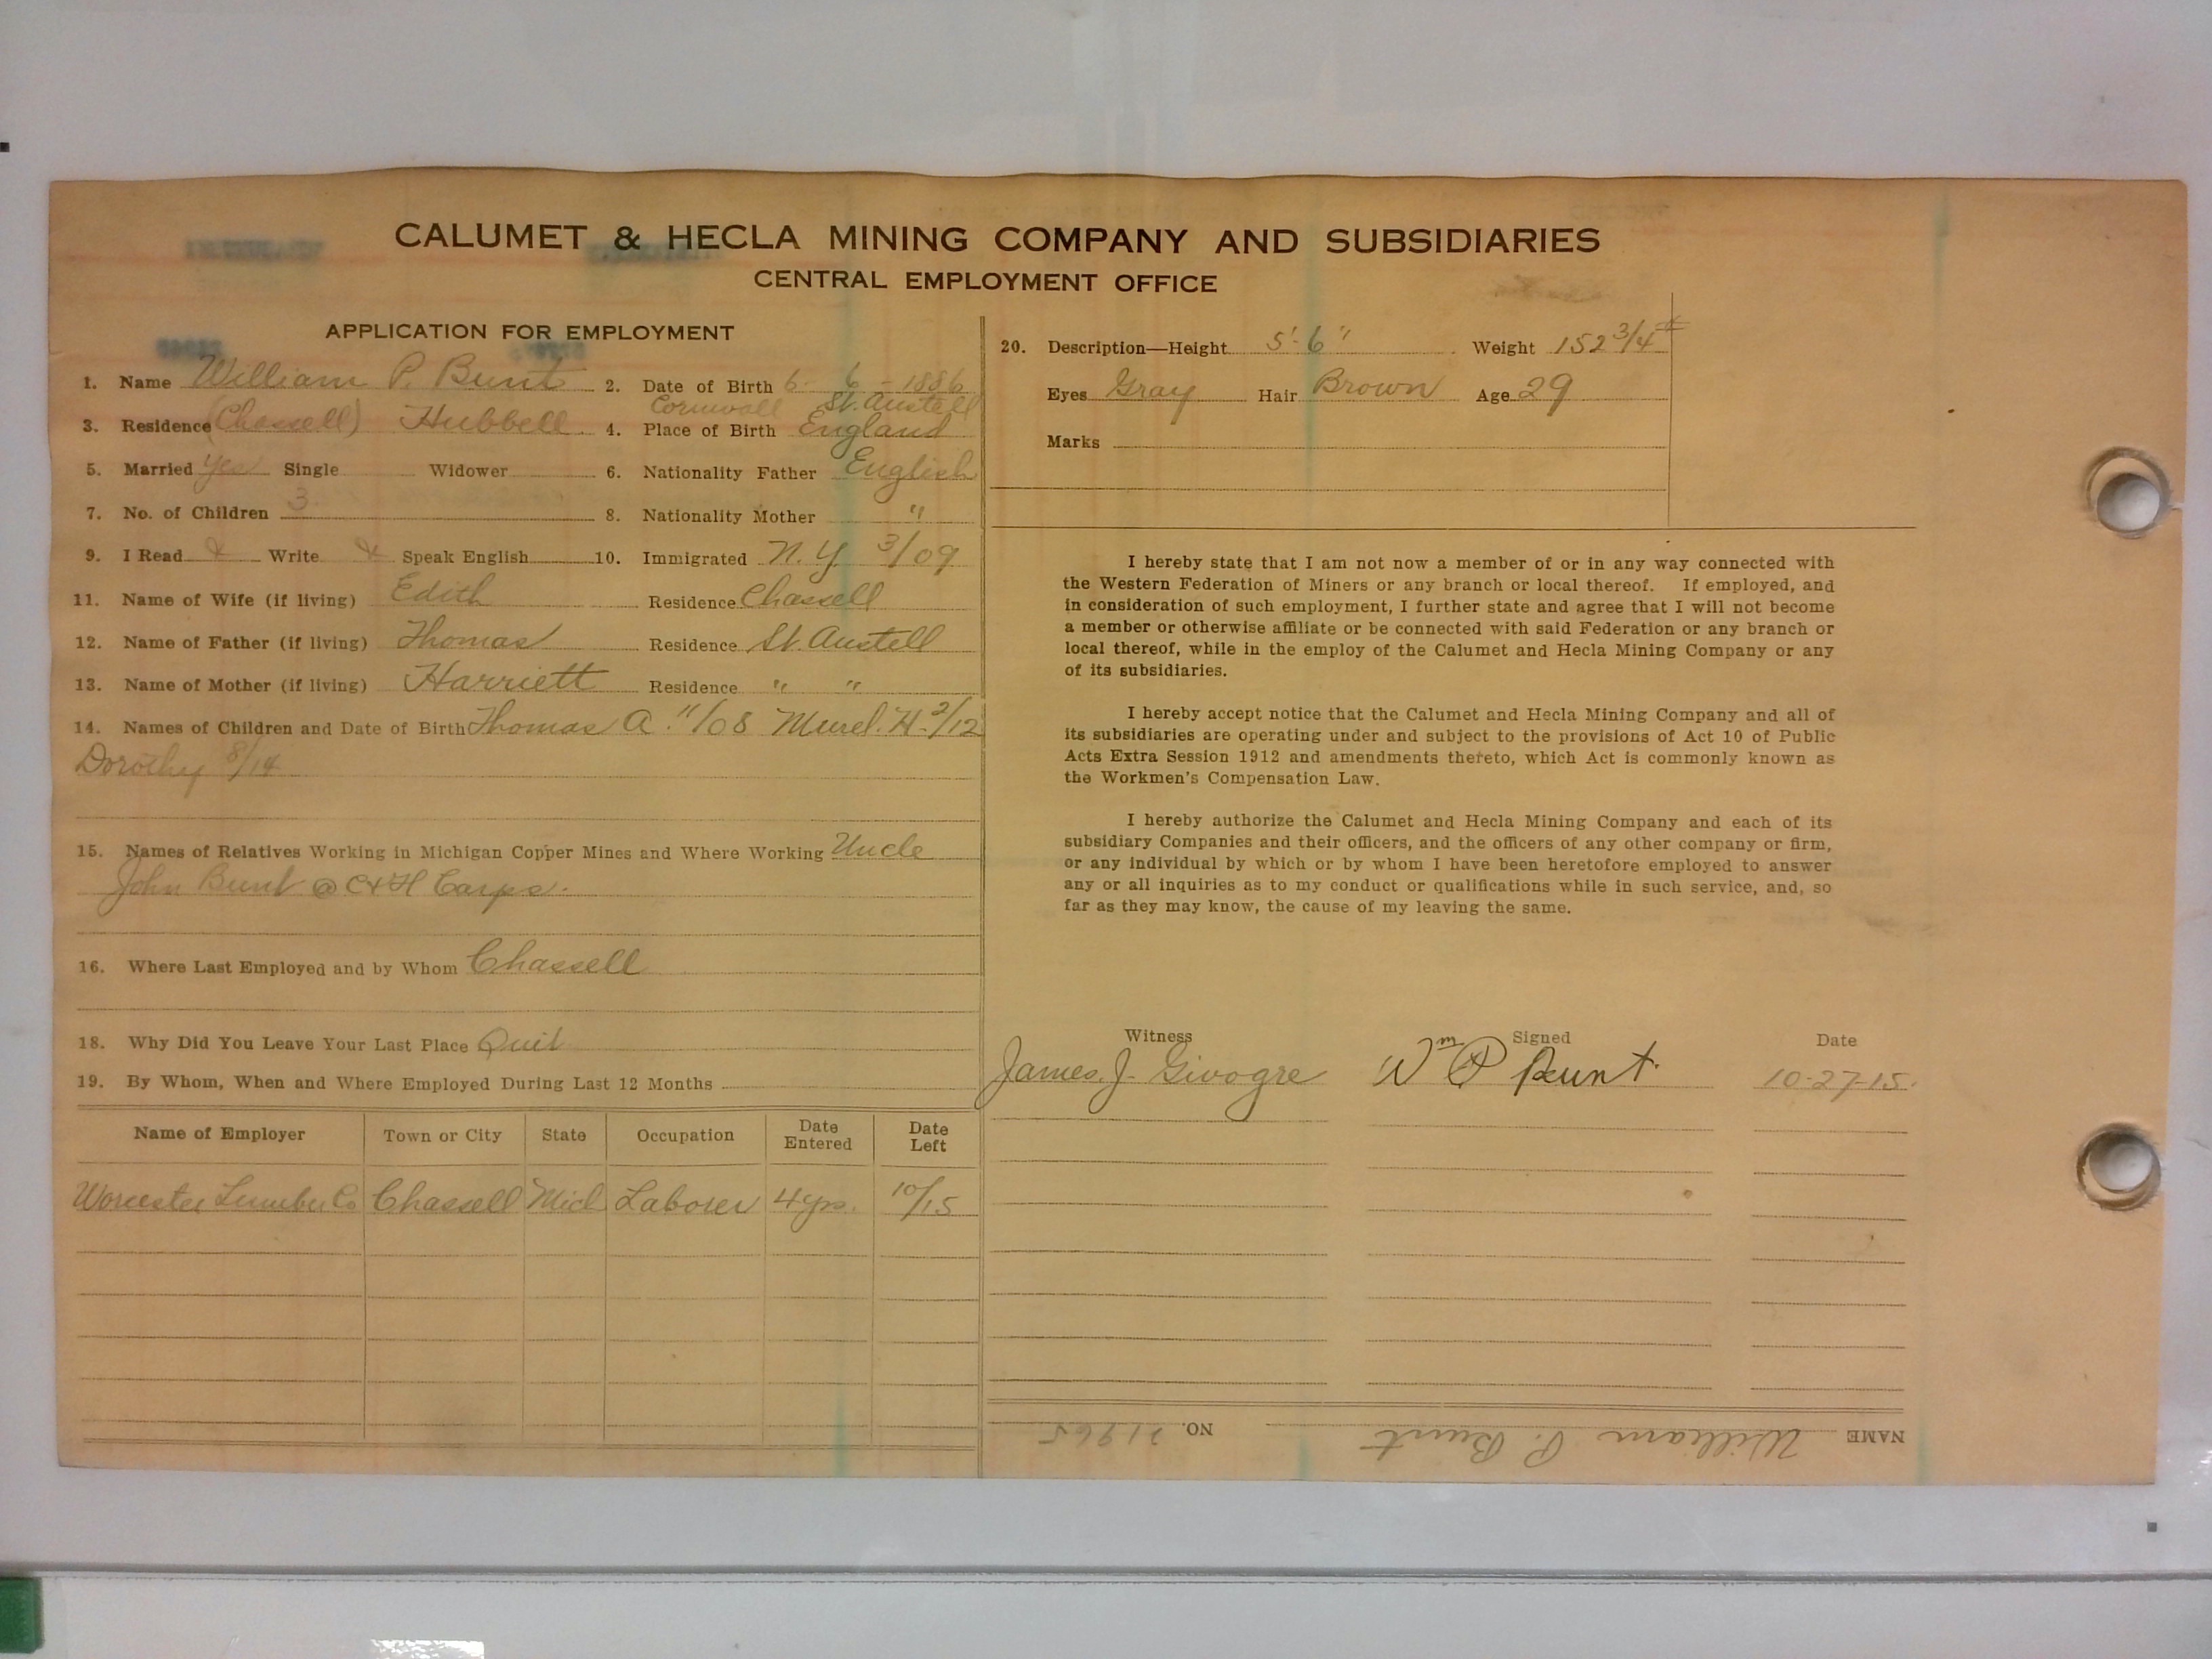 CALUMET & HECLA MINING COMPANY AND SUBSIDIARIES
CENTRAL EMPLOYMENT OFFICE
APPLICATION FOR EMPLOYMENT
1. Name William P. Bunt 2. Date of Birth 6 - 6 - 1886
Cornwall St. Austell
3. Residence (Chassell) Hubbell 4. Place of Birth England
5. Married Yes Single Widower 6. Nationality Father English
7. No. of Children 3 8. Nationality Mother "
9. I Read & Write & Speak English 10. Immigrated N. Y. 3/09
11. Name of Wife (if living) Edith Residence Chassell
12. Name of Father (if living) Thomas Residence St. Austell
13. Name of Mother (if living) Harriett Residence " "
14. Names of Children and Date of Birth Thomas A. 11/08 Murel. H. 2/12
Dorothy 8/14
15. Names of Relatives Working in Michigan Copper Mines and Where Working Uncle
John Bunt @ C & H Carps.
16. Where Last Employed and by Whom Chassell
18. Why Did You Leave Your Last Place Quit
19. By Whom, When and Where Employed During Last 12 Months
Name of Employer Town or City State Occupation Date Entered Date Left
Worcester Lumber Co Chassell Mich Laborer 4 yrs. 10/15
20. Description—Height 5'-6" Weight 152 3/4 #
Eyes Gray Hair Brown Age 29
Marks
I hereby state that I am not now a member of or in any way connected with
the Western Federation of Miners or any branch or local thereof. If employed, and
in consideration of such employment, I further state and agree that I will not become
a member or otherwise affiliate or be connected with said Federation or any branch or
local thereof, while in the employ of the Calumet and Hecla Mining Company or any
of its subsidiaries.
I hereby accept notice that the Calumet and Hecla Mining Company and all of
its subsidiaries are operating under and subject to the provisions of Act 10 of Public
Acts Extra Session 1912 and amendments thereto, which Act is commonly known as
the Workmen's Compensation Law.
I hereby authorize the Calumet and Hecla Mining Company and each of its
subsidiary Companies and their officers, and the officers of any other company or firm,
or any individual by which or by whom I have been heretofore employed to answer
any or all inquiries as to my conduct or qualifications while in such service, and, so
far as they may know, the cause of my leaving the same.
Witness Signed Date
James. J. Givogre Wm P Bunt. 10-27-15.
NAME William P. Bunt NO. 21965